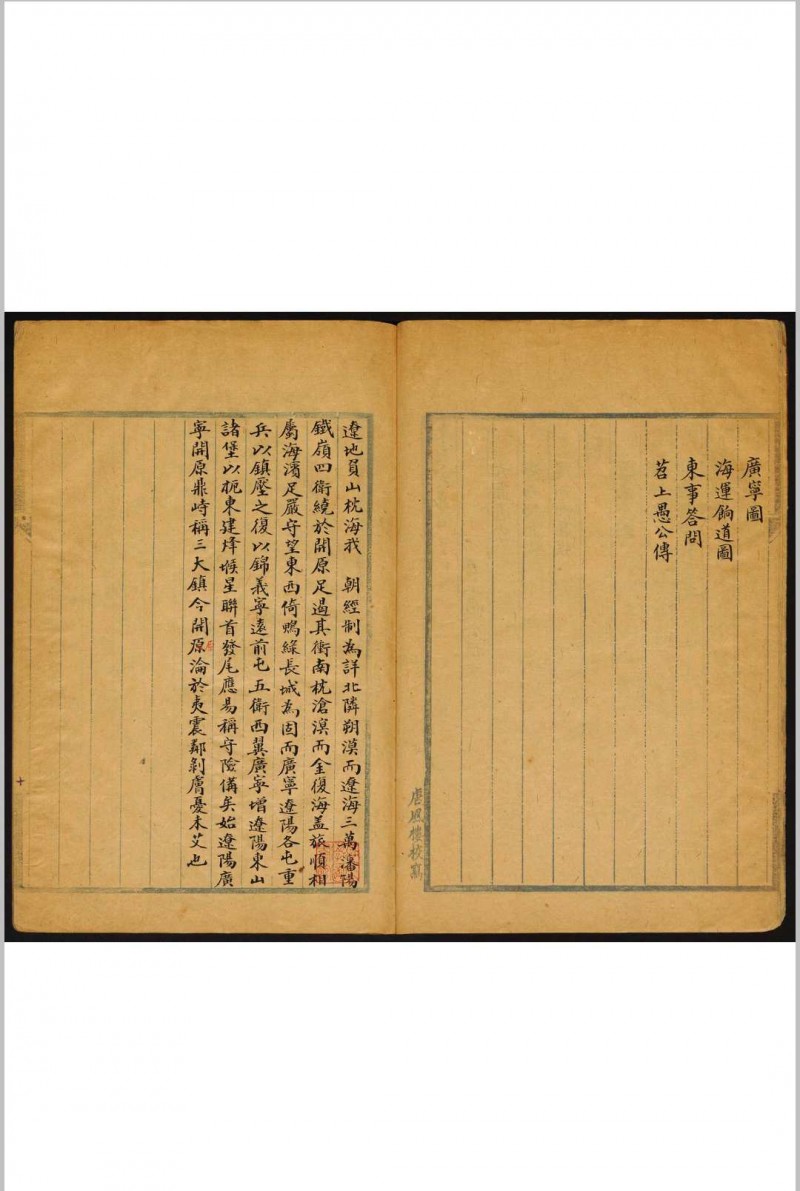 廣寧圖
海運餉道圖
東事答問
苕上愚公傳
唐風樓校寫
遼地負山枕海我 朝經制為詳北隣朔漠而遼海三萬瀋陽
鐵嶺四衛繞於開原足遏其衝南枕滄溟而金復海盖旅順相
屬海濱足嚴守望東西倚鴨綠長城為固而廣寧遼陽各屯重
兵以鎮壓之復以錦義寧遠前屯五衛西翼廣寧增遼陽東山
諸堡以扼東建烽堠星聯首發尾應易稱守險備矣始遼陽廣
寧開原鼎峙稱三大鎮今開原淪於夷震鄰剝膚憂未艾也